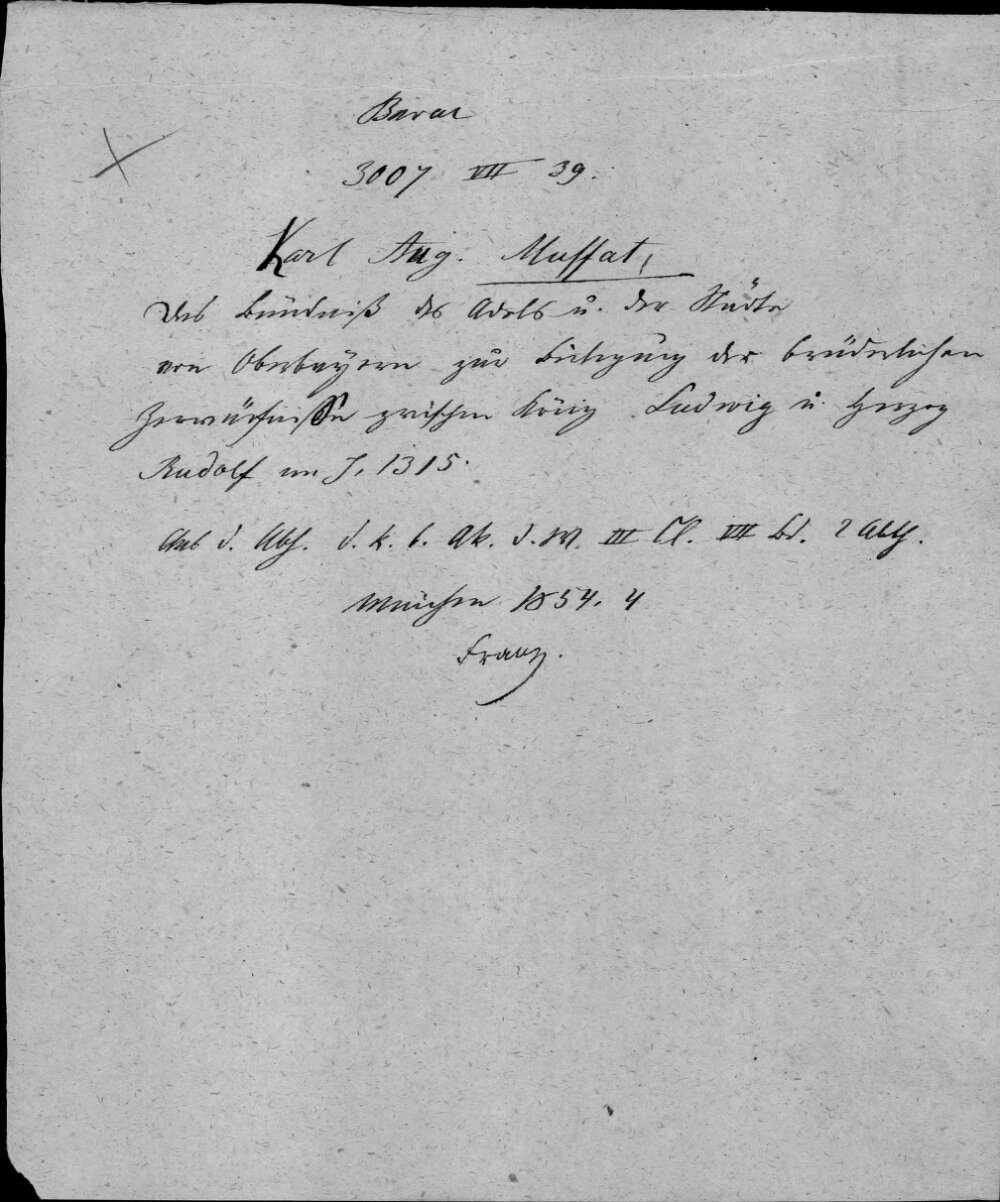 Bavar
3007 VII 39.
Karl Aug. Muffat,
Das Bündniß des Adels u. der Städte
von Oberbayern zur Beilegung der brüderlichen
Zerwürfnisse zwischen König Ludwig u. Herzog
Rudolf im J. 1315.
Aus d. Abh. d. k. b. Ak. d. W. III Cl. VII Bd. 2 Abth.
München 1854. 4
Franz.